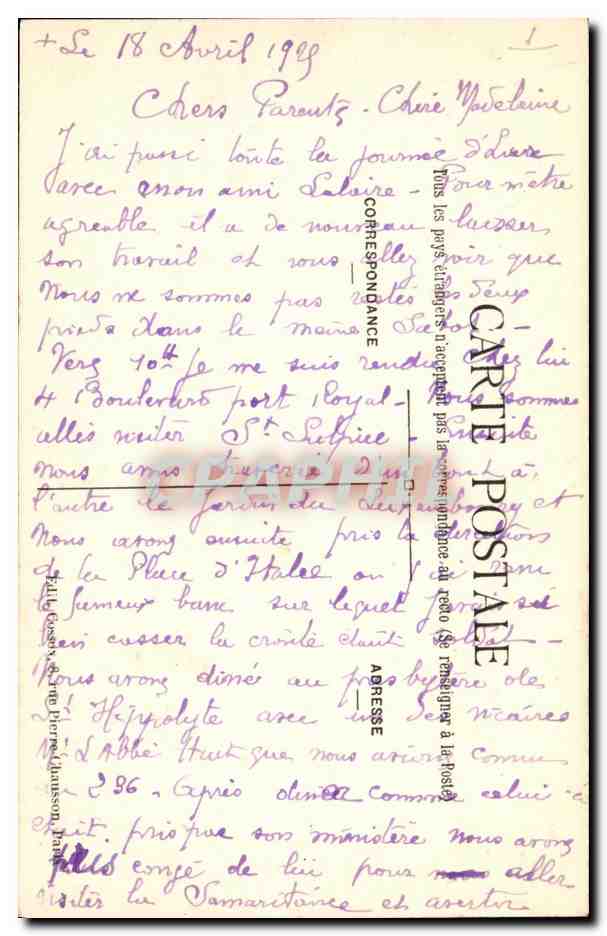 + Le 18 Avril 1925
1
Chers Parents - Chère Madeleine
J'ai passé toute la journée d'hier
avec mon ami Lalaire - Pour m'être
agréable il a de nouveau laisser
son travail et vous allez voir que
nous ne sommes pas restés les deux
pieds dans le même Sabot -
Vers 10H Je me suis rendu chez lui
4 Boulevard port Royal - Nous sommes
allés visiter St Sulpice - Ensuite
nous avons traversé d'un bout à
l'autre le jardin du Luxembourg et
Nous avons ensuite pris la direction
de la Place d'Italie où j'ai revu
le fameux banc sur lequel j'avais si
bien casser la croûte étant soldat -
Nous avons diné au presbytère de
St Hippolyte avec un des vicaires
Mr L'Abbé que nous avions connu
au 236 - Après diner comme celui-ci
était pris par son ministère nous avons
pris congé de lui pour aller
visiter la Samaritaine et
CARTE POSTALE
Tous les pays étrangers n'acceptent pas la correspondance au recto (Se renseigner à la Poste)
CORRESPONDANCE
ADRESSE
Edit. Cosson, 8, rue Pierre-Chausson, Paris
CPAPHIL